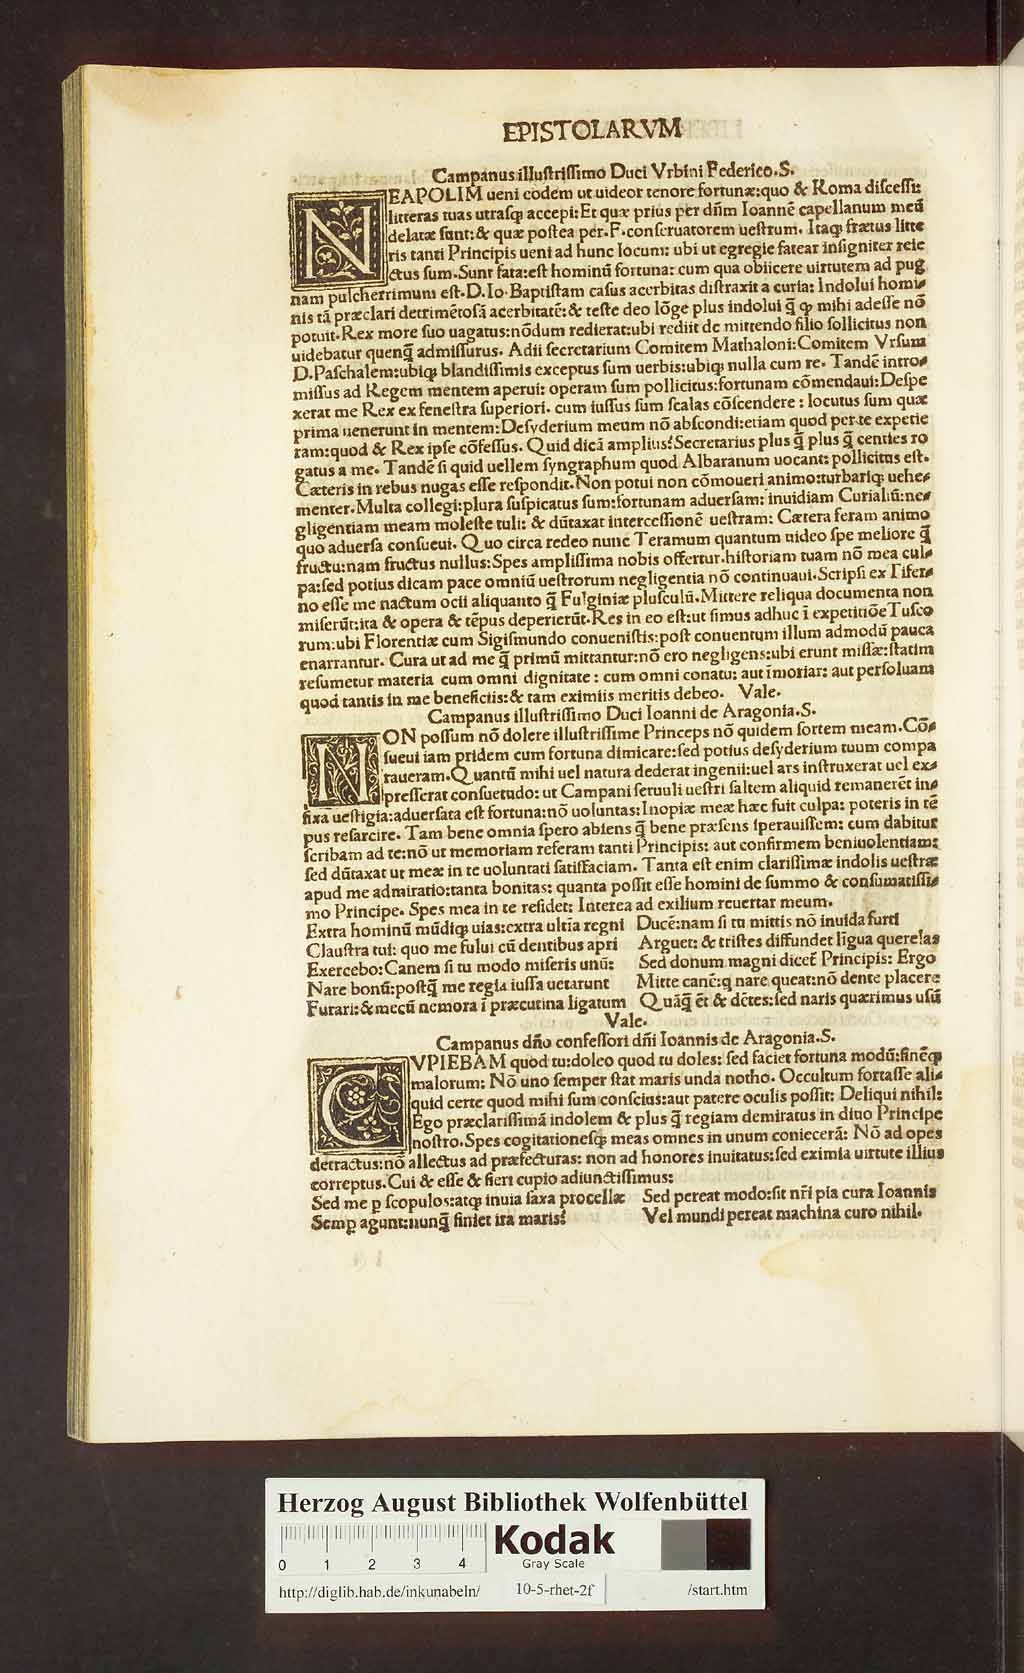 EPISTOLARVM
Campanus illuſtriſſimo Duci Vrbini Federico.S.
NEAPOLIM ueni eodem ut uideor tenore fortunæ:quo & Roma diſceſſi:
litteras tuas utraſꝗ accepi:Et quæ prius per dñm Ioannē capellanum meū
delatæ ſunt:& quæ poſtea per.F.conſeruatorem ueſtrum. Itaꝗ frætus litte
ris tanti Principis ueni ad hunc locum: ubi ut egregie fatear inſigniter reie
ctus ſum.Sunt fata:eſt hominū fortuna: cum qua obiicere uirtutem ad pug
nam pulcherrimum eſt.D.Io.Baptiſtam caſus acerbitas diſtraxit a curia: Indolui homi⸗
nis tā præclari detrimētoſā acerbitatē:& teſte deo lōge plus indolui q̄ ꝙ mihi adeſſe nō
potuit.Rex more ſuo uagatus:nōdum redierat:ubi rediit de mittendo filio ſollicitus non
uidebatur quenq̄ admiſſurus. Adii ſecretarium Comitem Mathaloni:Comitem Vrſum
D.Paſchalem:ubiꝗ blandiſſimis exceptus ſum uerbis:ubiꝗ nulla cum re. Tandē intro⸗
miſſus ad Regem mentem aperui: operam ſum pollicitus:fortunam cōmendaui:Deſpe
xerat me Rex ex feneſtra ſuperiori. cum iuſſus ſum ſcalas cōſcendere : locutus ſum quæ
prima uenerunt in mentem:Deſyderium meum nō abſcondi:etiam quod per te experie
ram:quod & Rex ipſe cōfeſſus. Quid dicā amplius?Secretarius plus q̄ plus q̄ centies ro
gatus a me. Tandē ſi quid uellem ſyngraphum quod Albaranum uocant: pollicitus eſt.
Cæteris in rebus nugas eſſe reſpondit.Non potui non cōmoueri animo:turbariꝗ uehe⸗
menter.Multa collegi:plura ſuſpicatus ſum:fortunam aduerſam: inuidiam Curialiū:ne⸗
gligentiam meam moleſte tuli: & dūtaxat interceſſionē ueſtram: Cætera feram animo
quo aduerſa conſueui. Quo circa redeo nunc Teramum quantum uideo ſpe meliore q̄
fructu:nam fructus nullus:Spes ampliſſima nobis offertur.hiſtoriam tuam nō mea cul⸗
pa:ſed potius dicam pace omniū ueſtrorum negligentia nō continuaui.Scripſi ex Tifer⸗
no eſſe me nactum ocii aliquanto q̄ Fulginiæ pluſculū.Mittere reliqua documenta non
miſerūt:ita & opera & tēpus deperierūt.Res in eo eſt:ut ſimus adhuc ī expetitiōe Tuſco
rum:ubi Florentiæ cum Sigiſmundo conueniſtis:poſt conuentum illum admodū pauca
enarrantur. Cura ut ad me q̄ primū mittantur:nō ero negligens:ubi erunt miſſæ:ſtatim
reſumetur materia cum omni dignitate : cum omni conatu: aut īmoriar: aut perſoluam
quod tantis in me beneficiis:& tam eximiis meritis debeo. Vale.
Campanus illuſtriſſimo Duci Ioanni de Aragonia.S.
NON poſſum nō dolere illuſtriſſime Princeps nō quidem ſortem meam.Cō⸗
ſueui iam pridem cum fortuna dimicare:ſed potius deſyderium tuum compa
raueram.Quantū mihi uel natura dederat ingenii:uel ars inſtruxerat uel ex⸗
preſſerat conſuetudo: ut Campani ſeruuli ueſtri ſaltem aliquid remanerēt in⸗
fixa ueſtigia:aduerſata eſt fortuna:nō uoluntas:Inopiæ meæ hæc fuit culpa: poteris in tē
pus reſarcire. Tam bene omnia ſpero abiens q̄ bene præſens ſperauiſſem: cum dabitur
ſcribam ad te:nō ut memoriam referam tanti Principis: aut confirmem beniuolentiam:
ſed dūtaxat ut meæ in te uoluntati ſatiſfaciam. Tanta eſt enim clariſſimæ indolis ueſtræ
apud me admiratio:tanta bonitas: quanta poſſit eſſe homini de ſummo & conſumatiſſi⸗
mo Principe. Spes mea in te reſidet: Interea ad exilium reuertar meum.
Extra hominū mūdiꝗ uias:extra ultīa regni Ducē:nam ſi tu mittis nō inuida furti
Clauſtra tui: quo me fului cū dentibus apri Arguet: & triſtes diffundet līgua querelas
Exercebo:Canem ſi tu modo miſeris unū: Sed donum magni dicet̄ Principis: Ergo
Nare bonū:poſtq̄ me regia iuſſa uetarunt Mitte canē:q nare queat:nō dente placere
Furari:&mecū nemora ī præcutina ligatum Quāq̄ ēt & dētes:ſed naris quærimus uſū
Vale.
Campanus dño confeſſori dñi Ioannis de Aragonia.S.
CVPIEBAM quod tu:doleo quod tu doles: ſed faciet fortuna modū:finēꝗ
malorum: Nō uno ſemper ſtat maris unda notho. Occultum fortaſſe ali⸗
quid certe quod mihi ſum conſcius:aut patere oculis poſſit: Deliqui nihil:
Ego præclariſſimā indolem & plus q̄ regiam demiratus in diuo Principe
noſtro.Spes cogitationeſꝗ meas omnes in unum coniecerā: Nō ad opes
detractus:nō allectus ad præfecturas: non ad honores inuitatus:ſed eximia uirtute illius
correptus.Cui & eſſe & fieri cupio adiunctiſſimus:
Sed me ꝑ ſcopulos:atꝗ inuia ſaxa procellæ Sed pereat modo:ſit nr̄i pia cura Ioannis
Semꝑ agunt:nunq̄ finiet ira maris? Vel mundi pereat machina curo nihil.
Herzog August Bibliothek Wolfenbüttel
0 1 2 3 4
Kodak
Gray Scale
http://diglib.hab.de/inkunabeln/ 10-5-rhet-2f /start.htm